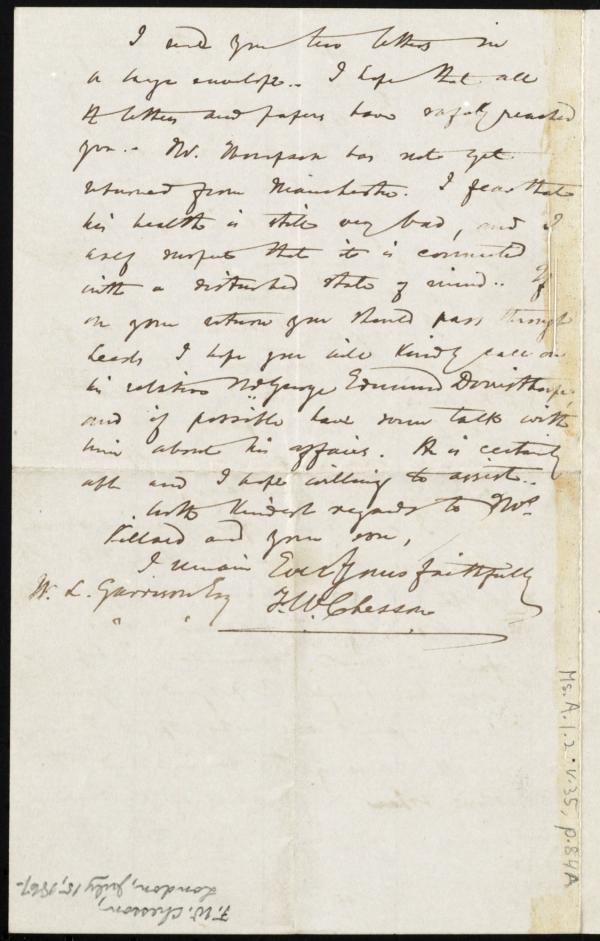 I send you two letters in
a large envelope.. I hope that all
letters and papers have safely reached
you.. Mr. Thompson has not yet
returned from Manchester. I fear that
his health is still very bad, and I
suspect that it is connected
with a disturbed state of mind.. If
on your return you should pass through
Leeds I hope you will kindly call on
his relative Mr. George Edmund Donisthorpe,
and if possible have some talk with
him about his affairs. He is certainly
able and I hope willing to assist..
With kindest regards to Mrs.
Villard and your son,
I remain Ever Yours faithfully
F. W. Chesson
W. L. Garrison Esq
" "
Ms. A. 1. 2 . v. 35, p. 84A
F. W. Chesson,
London, July 15, 1867.